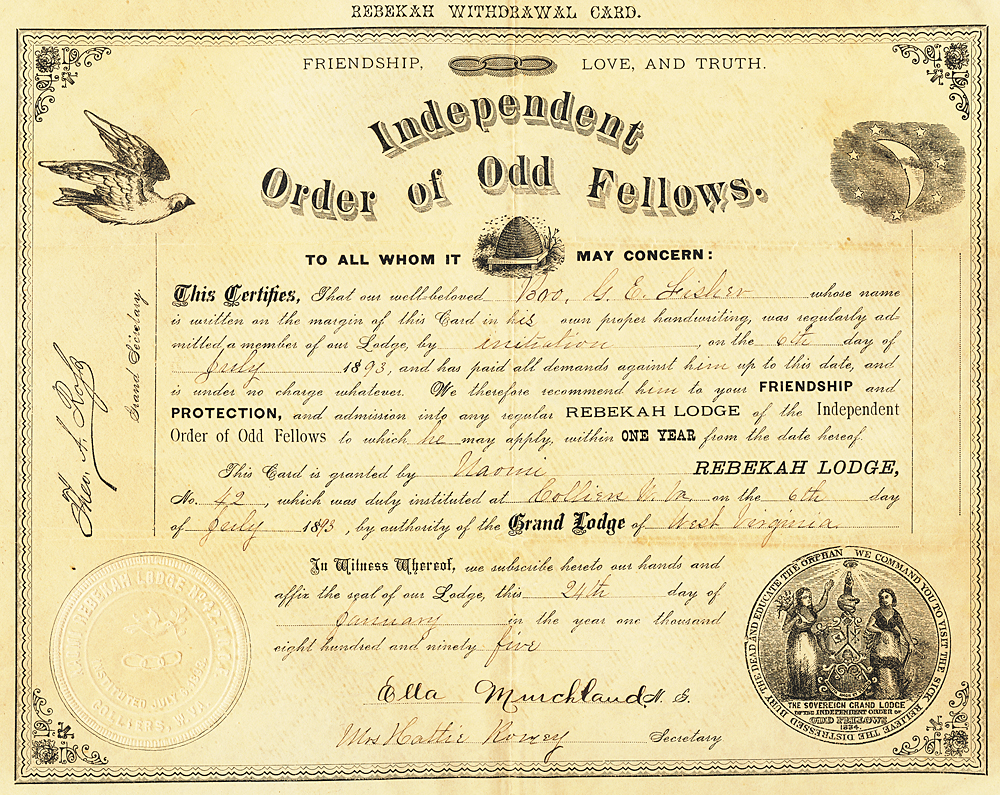 REBEKAH WITHDRAWAL CARD.
FRIENDSHIP, LOVE, AND TRUTH.
Independent
Order of Odd Fellows.
TO ALL WHOM IT MAY CONCERN:
This Certifies, That our well-beloved Bro. G. E. Fisher whose name
is written on the margin of this Card in his own proper handwriting, was regularly ad-
mitted a member of our Lodge, by initiation, on the 6th day of
July 1893, and has paid all demands against him up to this date, and
is under no charge whatever. We therefore recommend him to your FRIENDSHIP and
PROTECTION, and admission into any regular REBEKAH LODGE of the Independent
Order of Odd Fellows to which he may apply, within ONE YEAR from the date hereof.
This Card is granted by Naomi REBEKAH LODGE,
No. 42, which was duly instituted at Colliers W. Va. on the 6th day
of July 1893, by authority of the Grand Lodge of West Virginia
In Witness Whereof, we subscribe hereto our hands and
affix the seal of our Lodge, this 24th day of
January in the year one thousand
eight hundred and ninety five
Ella Murchland N. G.
Mrs Hattie Secretary
Grand Secretary.
NAOMI REBEKAH LODGE NO. 42, I.O.O.F.
INSTITUTED JULY 6, 1893.
COLLIERS, W.VA.
WE COMMAND YOU TO VISIT THE SICK RELIEVE THE DISTRESSED BURY THE DEAD AND EDUCATE THE ORPHAN
THE SOVEREIGN GRAND LODGE
OF THE INDEPENDENT ORDER OF
ODD FELLOWS
1834.